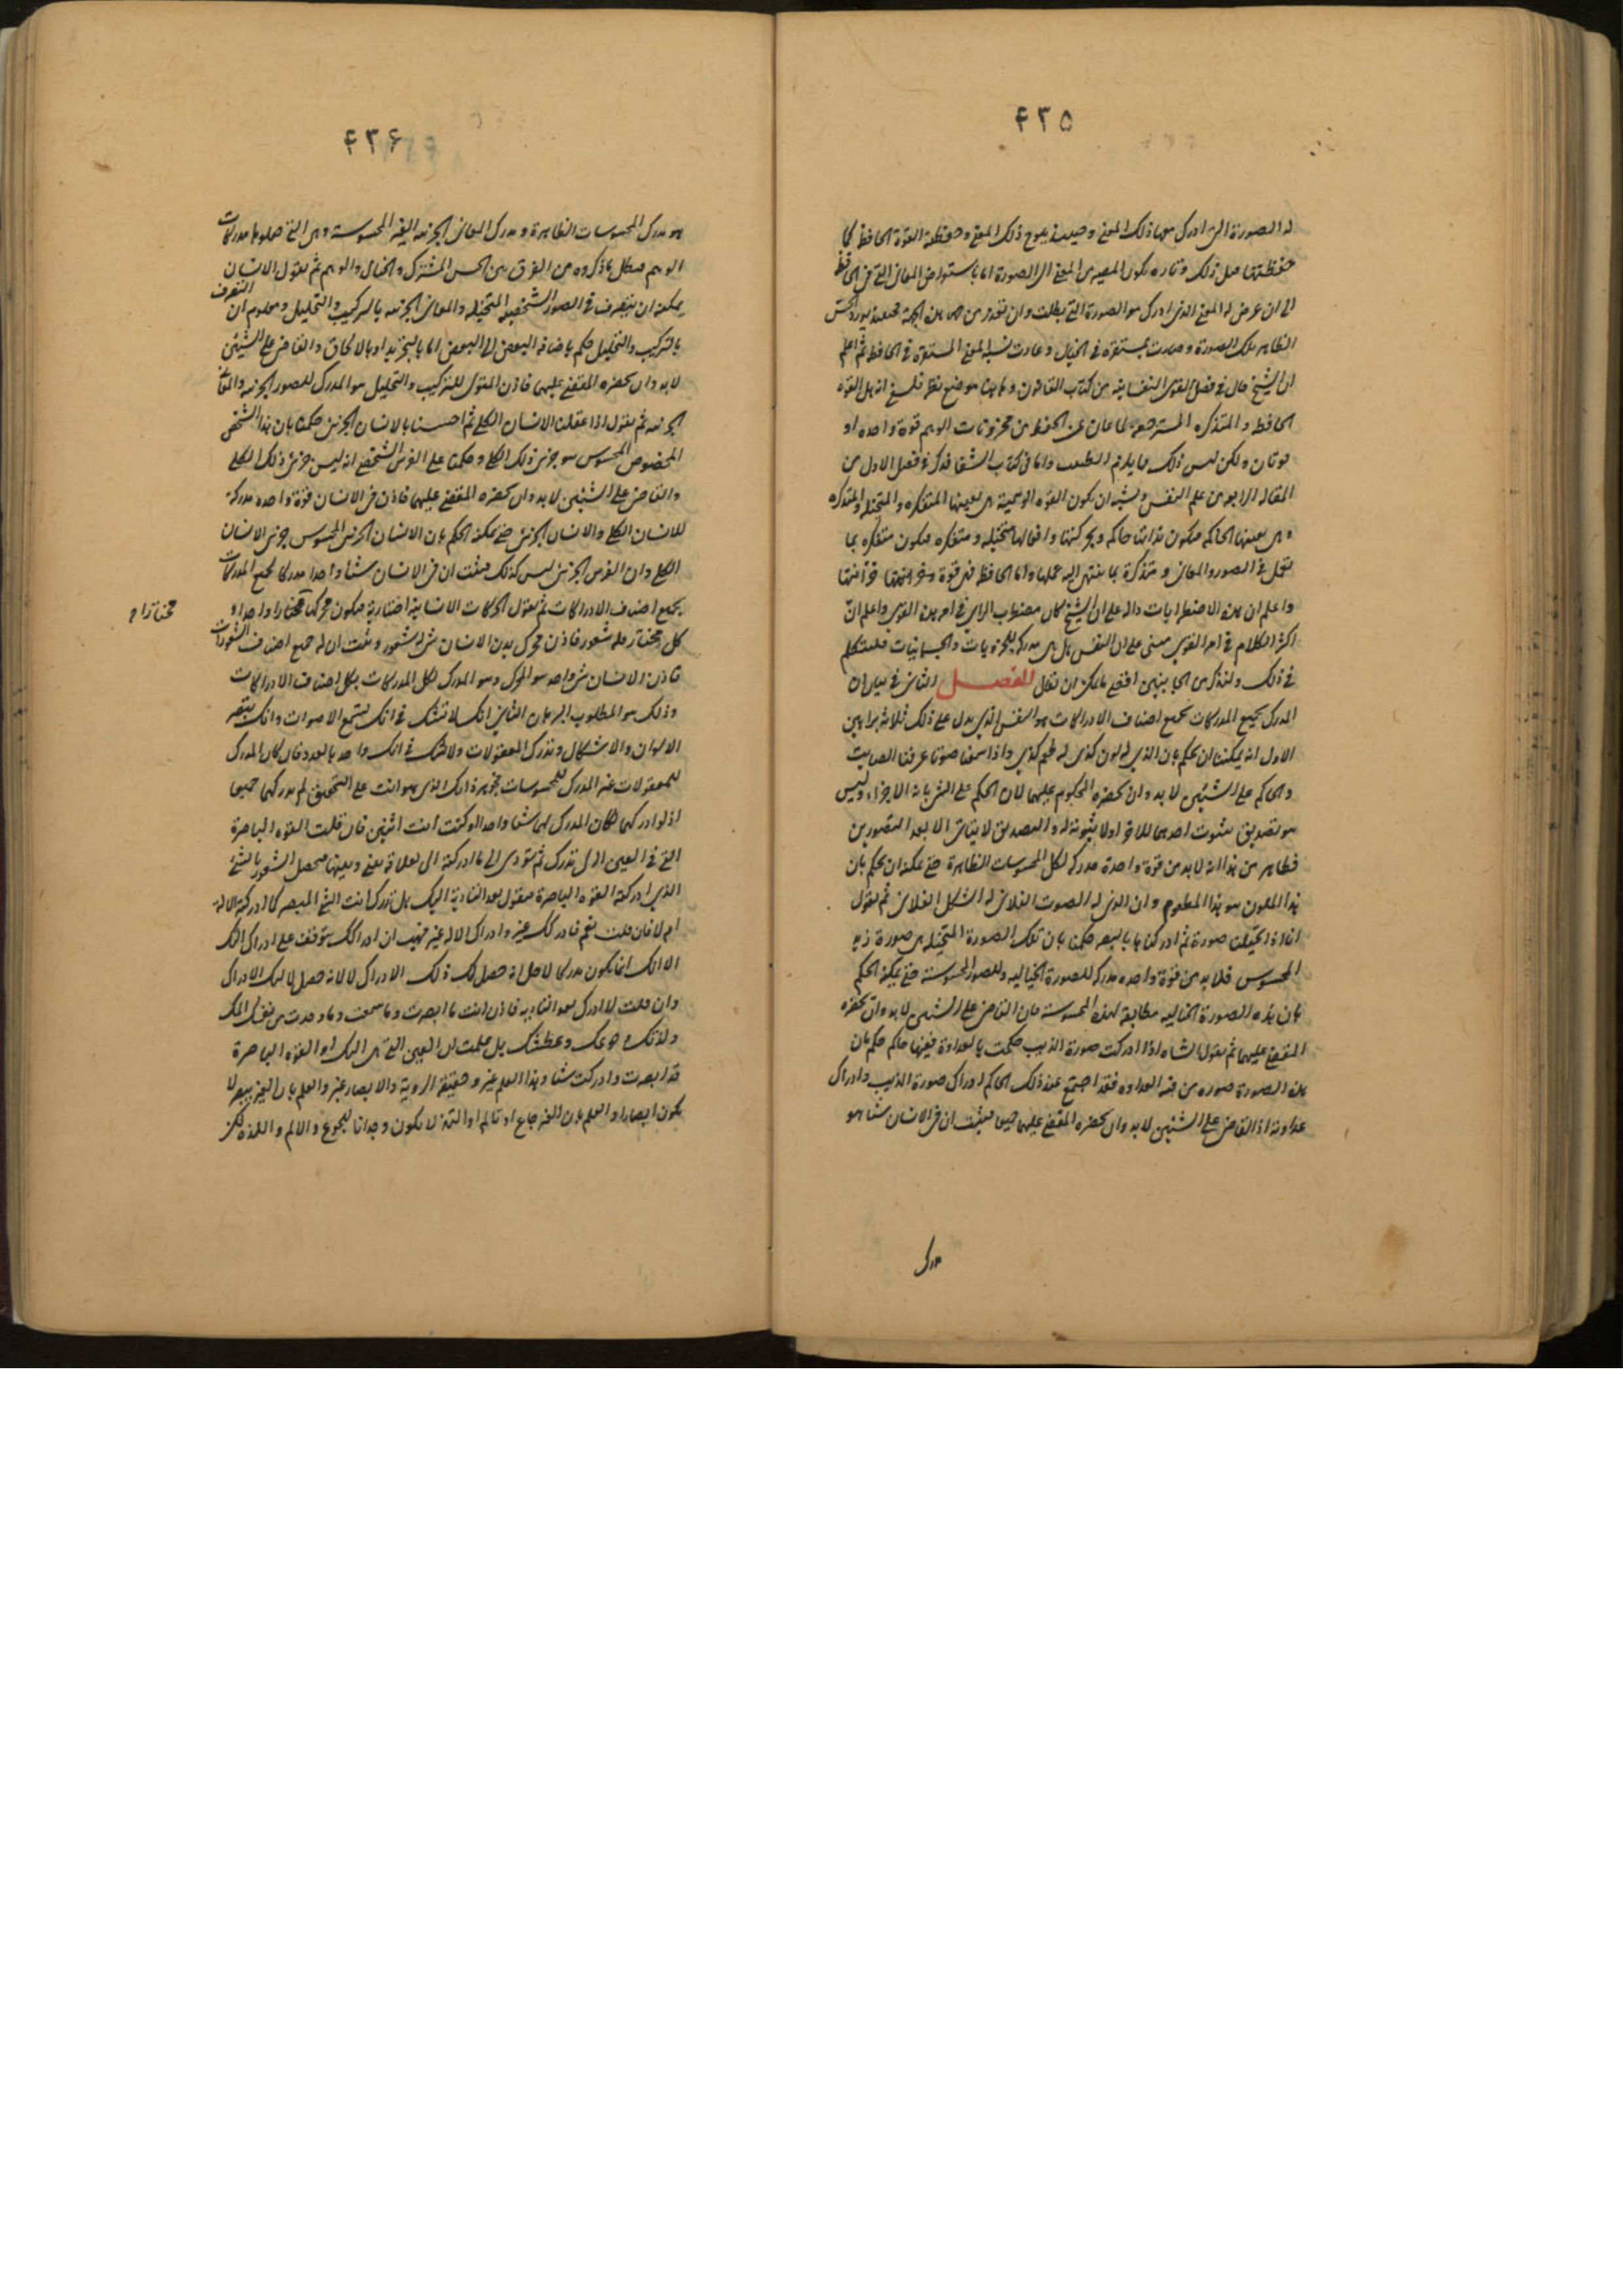 ۴۳۵
له الصورة التى ادرك معها ذلك المعنى وحينئذ يلوح ذلك المعنى وحفظته القوة الحافظة كما
حفظتها قبل ذلك وتاره يكون المصير من المعنى الى الصورة اما باستعراض المعانى التى فى الحافظة
الى ان عرض له المعنى الذى ادرك مع الصورة التى بطلت وان تعذر من هذه الجهة فحينئذ يورد الحس
الظاهر تلك الصورة وصارت مستقرة فى الخيال وعادت نسبة المعنى المستقرة فى الحافظة ثم اعلم
ان الشيخ قال فى فصل القوى النفسانية من كتاب القانون وهاهنا موضع نظر فلسفى انه هل القوة
الحافظة والمتذكرة المسترجعة لما غاب عن الحفظ من مخزونات الوهم قوة واحدة او
قوتان ولكن ليس ذلك مما يلزم الطبيب واما فى كتاب الشفا فذكر فى فصل الاول من
المقالة الرابعة من علم النفس ويشبه ان يكون القوة الوهمية هى بعينها المتفكرة والمتخيلة والمتذكرة
وهى بعينها الحاكمة فتكون بذاتها حاكمة وبحركتها وافعالها متخيلة ومتفكرة فتكون متفكرة بما
تعمل فى الصور والمعانى ومتذكرة بما ينتهى اليه عملها واما الحافظة فهى قوة خزانتها
واعلم ان هذه الاضطرابات دالة على ان الشيخ كان مضطرب الراى فى امر هذه القوى واعلم ان
اكثر الكلام فى امر القوى مبنى على ان النفس هل هى مدركة للجزويات والجسمانيات فلنتكلم
فى ذلك ولنذكر من الجانبين اقصى ما يمكن ان يقال الفصل الثانى فى بيان ان
المدرك بجميع المدركات بجميع اصناف الادراكات هو النفس الذى يدل على ذلك ثلاثة براهين
الاول انه يمكننا ان نحكم بان الذى له لون كذى له طعم كذى واذا سمعنا صوتا عرفنا الصايت
والحاكم على الشيئين لابد وان يحضره المحكوم عليهما لان الحكم على الشى بانه الاخر او ليس
هو تصديق بثبوت احدهما للاخر او لا ثبوته له والتصديق لا يتاتى الا بعد التصورين
فظاهر من هذا انه لابد من قوة واحدة مدركة لكل المحسوسات الظاهرة حتى يمكنه ان يحكم بان
هذا الملون هو هذا المطعوم وان الذى له الصوت الفلانى له الشكل الفلانى ثم نقول
انا اذا تخيلنا صورة ثم ادركناها بالبصر حكمنا بان تلك الصورة المتخيلة هى صورة زيد
المحسوس فلابد من قوة واحدة مدركة للصورة الخيالية وللصور المحسوسة حتى يمكنه الحكم
بان هذه الصورة الخيالية مطابقة لهذه المحسوسة فان القاضى على الشيئين لابد وان يحضره
المقضى عليهما ثم نقول الشاة اذا ادركت صورة الذيب حكمت بالعداوة ففيها حاكم حكم بان
هذه الصورة صورة من فيه العداوة فقد اجتمع عند ذلك الحاكم ادراك صورة الذيب وادراك
عداوته اذ القاضى على الشيئين لابد وان يحضره المقضى عليهما جميعا فيثبت ان فى الانسان شيئا هو
مدرك
۴۳۶
هو مدرك المحسوسات الظاهرة ومدرك المعانى الجزئية الغير المحسوسة وهى التى جعلوها مدركات
الوهم فبطل ما ذكروه من الفرق بين الحس المشترك والخيال والوهم ثم نقول الانسان
يمكنه ان يتصرف فى الصور الشخصية المتخيلة والمعانى الجزئية بالتركيب والتحليل ومعلوم ان التصرف
بالتركيب والتحليل حكم باضافة البعض الى البعض اما بالتجريد او بالالحاق والقاضى على الشيئين
لابد وان يحضره المقضى عليهما فاذن المتولى للتركيب والتحليل هو المدرك للصور الجزئية والمعانى
الجزئية ثم نقول اذا عقلنا الانسان الكلى ثم احسسنا بالانسان الجزئى حكمنا بان هذا الشخص
المخصوص المحسوس هو جزئى ذلك الكلى وحكمنا على الفرس الشخصى انه ليس جزئى ذلك الكلى
والقاضى على الشيئين لابد وان يحضره المقضى عليهما فاذن فى الانسان قوة واحدة مدركة
للانسان الكلى والانسان الجزئى حتى يمكنه الحكم بان الانسان الجزئى المحسوس جزئى الانسان
الكلى وان الفرس الجزئى ليس كذلك فيثبت ان فى الانسان شيئا واحدا مدركا لجميع المدركات
بجميع اصناف الادراكات ثم نقول الحركات الانسانية اختيارية فيكون محركها مختارا واحدا و
مختارا م
كل مختار فله شعور فاذن محرك بدن الانسان شى له شعور وثبت ان له جميع اصناف الشعورات
فاذن الانسان شى واحد هو المحرك وهو المدرك لكل المدركات بكل اصناف الادراكات
وذلك هو المطلوب البرهان الثانى انك لا تشك فى انك تسمع الاصوات وانك تبصر
الالوان والاشكال وتدرك المعقولات ولا تشك فى انك واحد بالعدد فان كان المدرك
للمعقولات غير المدرك للمحسوسات فجوهر ذاتك الذى هو انت على التحقيق لم يدركهما جميعا
اذ لو ادركهما لكان المدرك لهما شيئا واحدا والا كنت انت اثنين فان قلت القوة الباصرة
التى فى العين الة تدرك ثم تؤدى الى ما ادركته الى لعلاقة بينى وبينها فيحصل الشعور بالشى
الذى ادركته القوة الباصرة فنقول بعد التادية اليك هل تدرك انت الشى المبصر كما ادركته الالة
ام لا فان قلت نعم فادراكك غير وادراك الالة غير فهب ان ادراكك يتوقف على ادراك التك
الا انك انما تكون مدركا لاجل انه حصل لك ذلك الادراك لا لانه حصل لالتك الادراك
وان قلت لا ادرك بعد التادية فاذن انت ما ابصرت وما سمعت وما وجدت من نفسك المك
ولذتك وجوعك وعطشك بل علمت ان العين التى هى الة لك او القوة الباصرة
قد ابصرت وادركت شيئا وهذا العلم غير وحقيقة الروية والابصار غير والعلم بان الغير يبصر لا
يكون ابصارا والعلم بان الغير جاع او تالم او التذ لا يكون وجدانا للجوع والالم واللذة فاذن